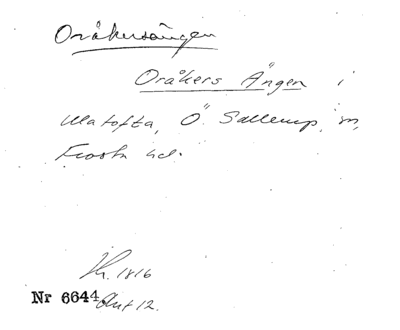 Oråkersängen
Oråkers Ängen i
Matofta, Ö. Sallerup, sn,
Frosta hd.
1816
Nr 6644 Akt 12.